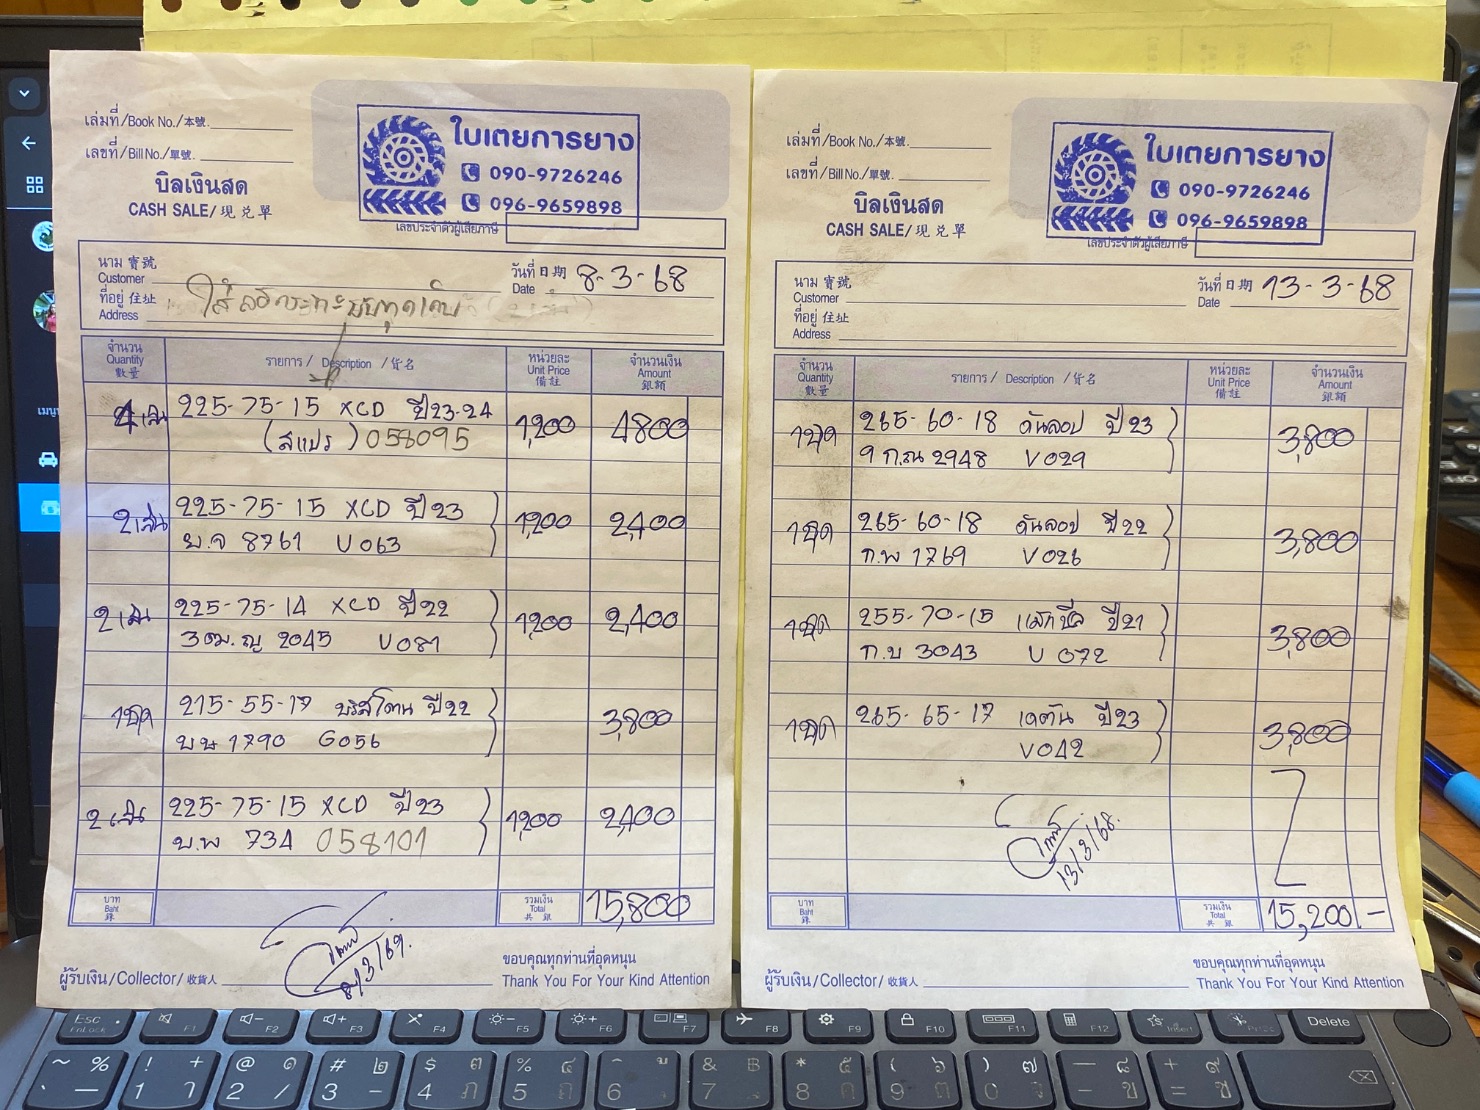 เล่มที่/Book No./本號.
เลขที่/Bill No./單號.
บิลเงินสด
CASH SALE/現兑單
ใบเตยการยาง
090-9726246
096-9659898
เลขประจำตัวผู้เสียภาษี
นาม 寶號
Customer
วันที่ 日期 8-3-68
Date
ที่อยู่ 住址
Address
ใส่
จำนวน
Quantity
數量
รายการ / Description / 貨名
หน่วยละ
Unit Price
備註
จำนวนเงิน
Amount
銀額
4 เส้น 225-75-15 XCD ปี23-24 1,200 4800
(สแปร์) 058095
2 เส้น 225-75-15 XCD ปี23 1,200 2,400
ผ.จ 8761 V063
2 เส้น 225-75-14 XCD ปี22 1,200 2,400
3ฒฌ 2045 V081
1 ชุด 215-55-17 ปี22 3,800
บษ 1790 G056
2 เส้น 225-75-15 XCD ปี23 1,200 2,400
บ.พ 734 058101
บาท
Baht
銖
รวมเงิน
Total
共銀
15,800
8/3/69.
ผู้รับเงิน/Collector/收貨人
ขอบคุณทุกท่านที่อุดหนุน
Thank You For Your Kind Attention
เล่มที่/Book No./本號.
เลขที่/Bill No./單號.
บิลเงินสด
CASH SALE/現兑單
ใบเตยการยาง
090-9726246
096-9659898
เลขประจำตัวผู้เสียภาษี
นาม 寶號
Customer
วันที่ 日期 13-3-68
Date
ที่อยู่ 住址
Address
จำนวน
Quantity
數量
รายการ / Description / 貨名
หน่วยละ
Unit Price
備註
จำนวนเงิน
Amount
銀額
1 ชุด 265-60-18 ดันลอป ปี23 3,800
9 ก.ณ 2948 V029
1 ชุด 265-60-18 ดันลอป ปี22 3,800
ก.พ 1769 V026
1 ชุด 255-70-15 ปี21 3,800
ก.บ 3043 V072
1 ชุด 265-65-17 ปี23 3,800
V042
13/3/68.
บาท
Baht
銖
รวมเงิน
Total
共銀
15,200.-
ผู้รับเงิน/Collector/收貨人
ขอบคุณทุกท่านที่อุดหนุน
Thank You For Your Kind Attention
Esc
FnLock
F1
F2
F3
F4
F5
F6
F7
F8
F9
F10
F11
F12
Insert
Delete